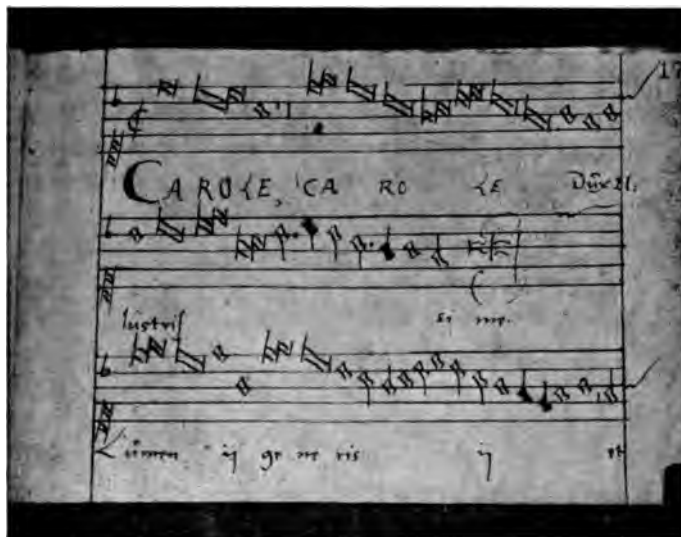 17
CAROLE, CARO LE Dux Il,
lustris si me.
Lumen ij ge ne ris ij et